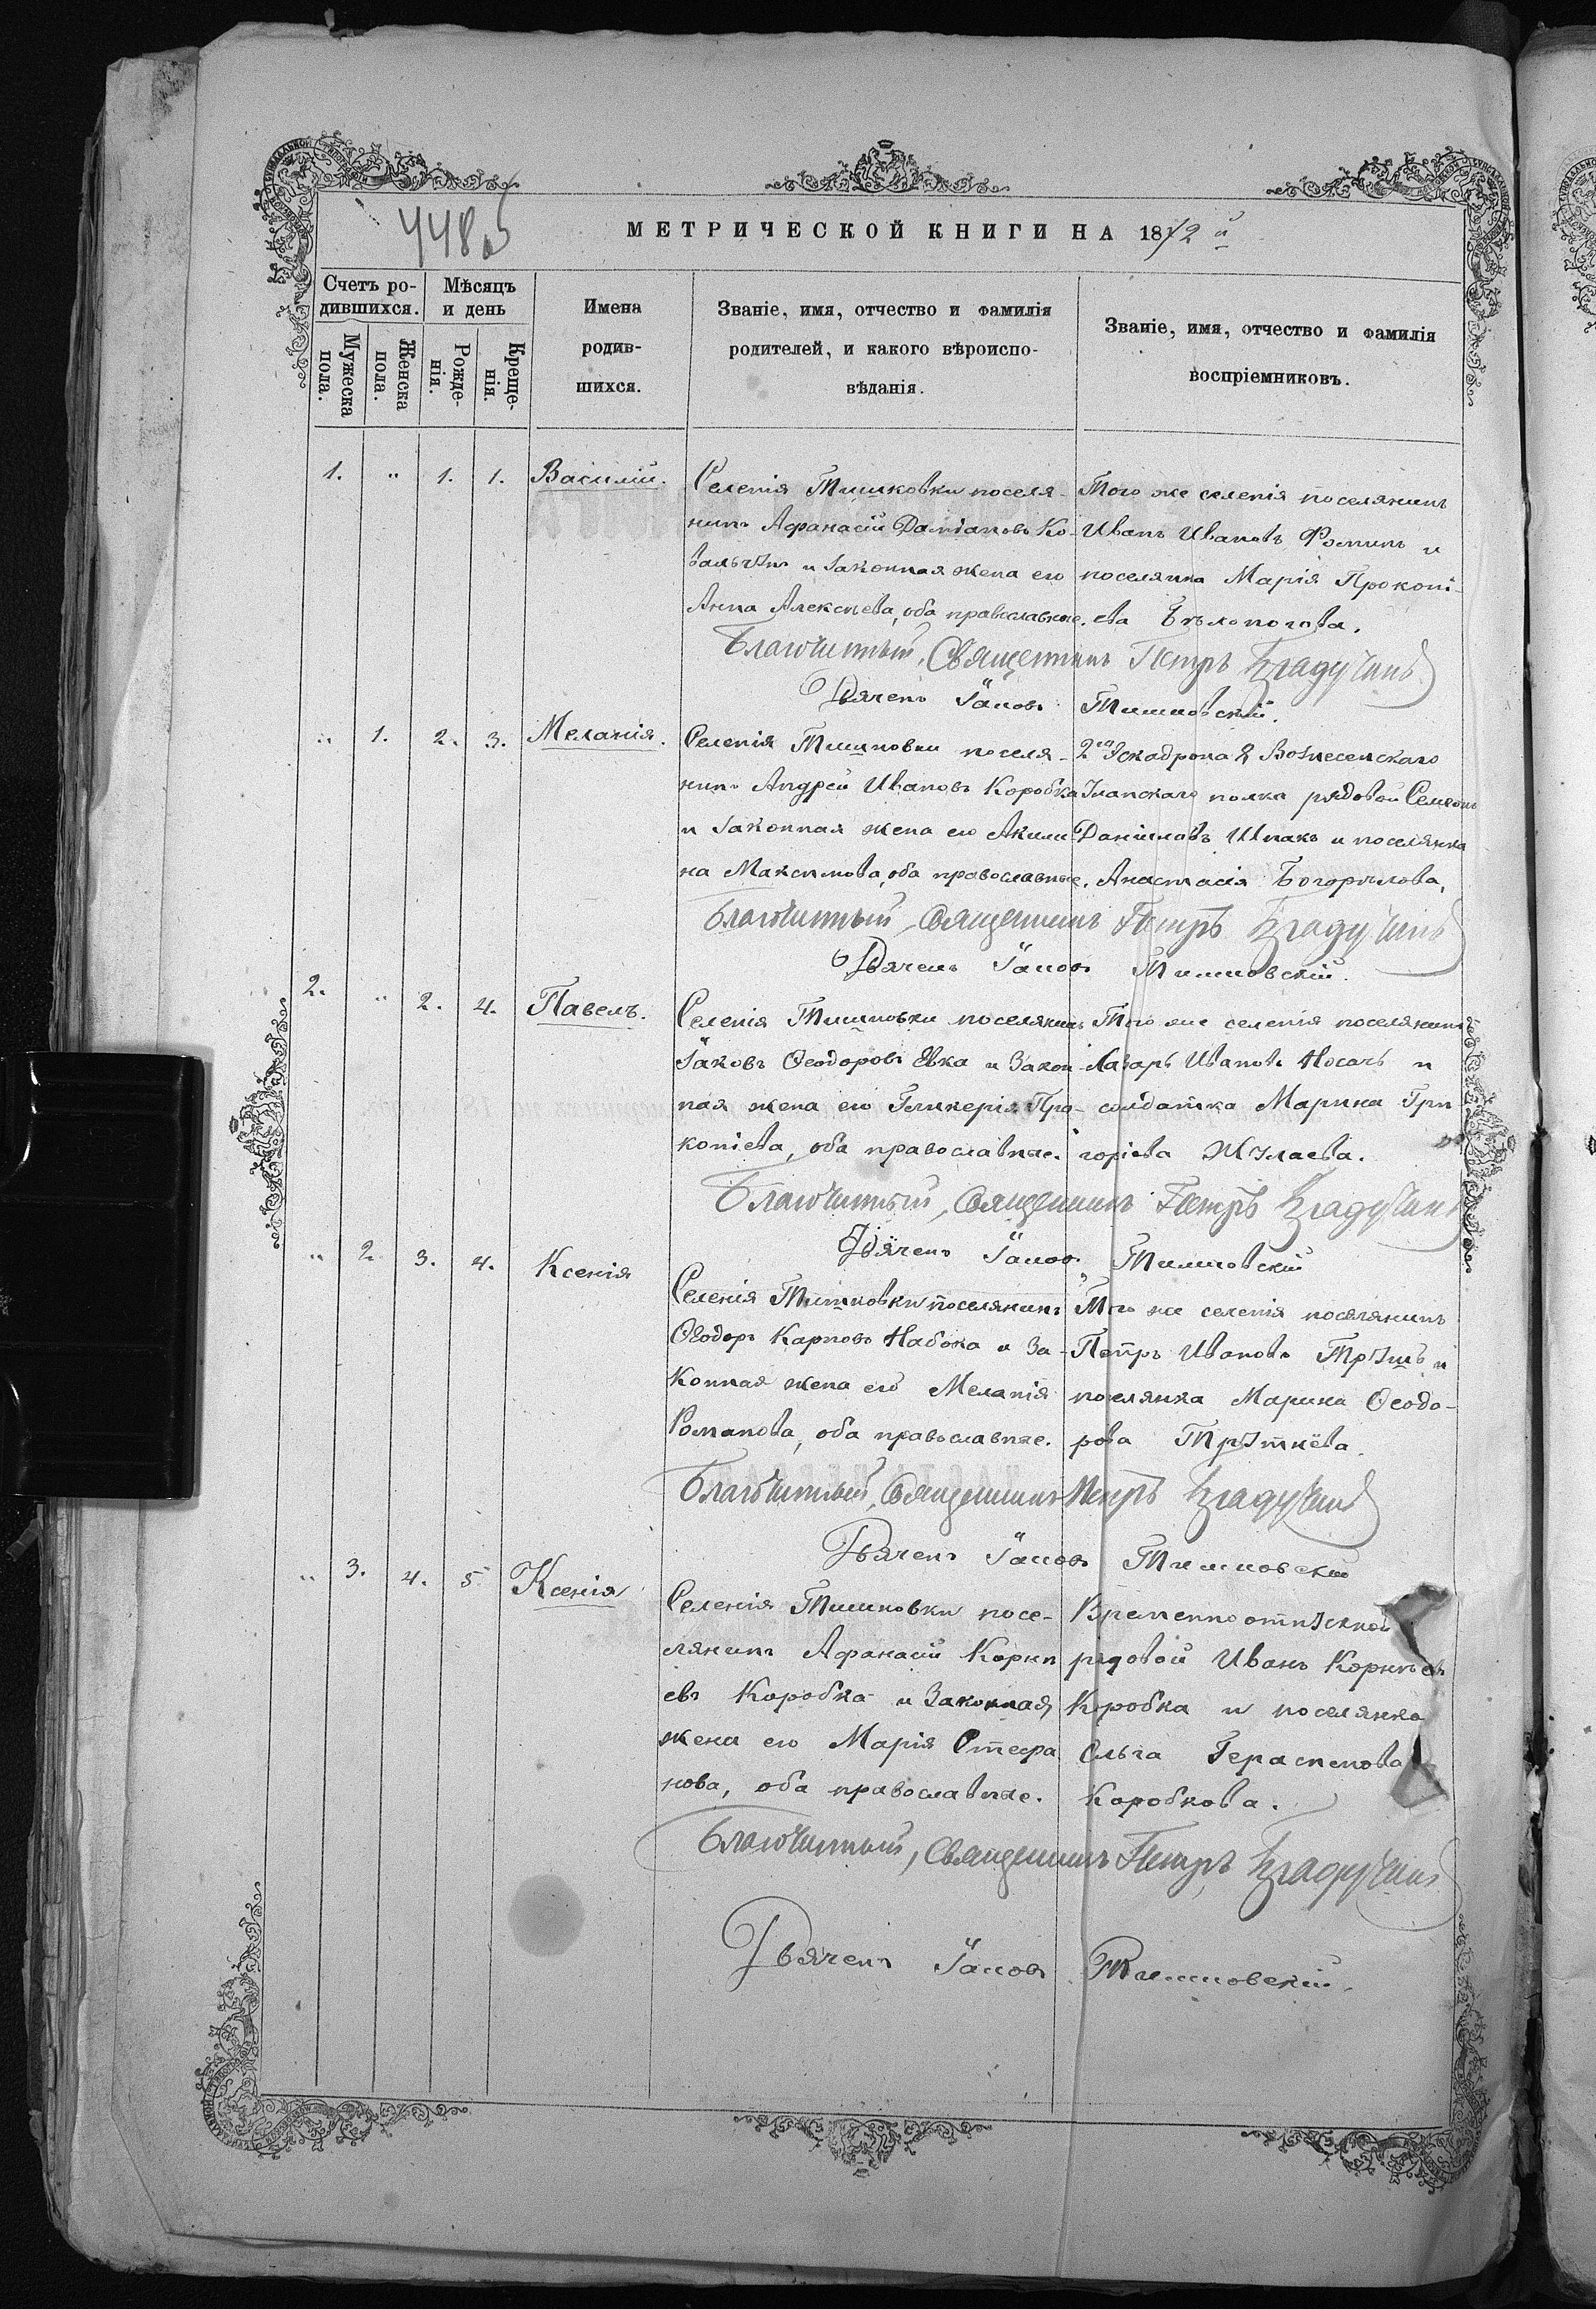 448 об
МЕТРИЧЕСКОЙ КНИГИ НА 1872 й
Счетъ ро-
дившихся.
Мужеска
пола.
Женска
пола.
Мѣсяцъ
и день
Рожде-
нія.
Креще-
нія.
Имена
родив-
шихся.
Званіе, имя, отчество и фамилія
родителей, и какого вѣроиспо-
вѣданія.
Званіе, имя, отчество и фамилія
воспріемниковъ.
1. " 1. 1. Василій.
Селенія Тишковки поселя-
нинъ Афанасій Даміановъ Ко-
вальчукъ и законная жена его
Анна Алексѣева, оба православные.
Того же селенія поселянинъ
Иванъ Ивановъ Фоминъ и
поселянка Марія Прокопі-
ева Бѣлоногова.
Благочинный, Священникъ Петръ
Дьячекъ Іаковъ Тишковскій.
" 1. 2. 3. Меланія.
Селенія Тишковки поселя-
нинъ Андрей Ивановъ Коробка
и законная жена его Акили-
на Максимова, оба православные.
2го Эскадрона 2 Вознесенскаго
Уланскаго полка рядовой Семеонъ
Даніиловъ Шпакъ и поселянка
Анастасія Богорѣлова.
Благочинный, Священникъ Петръ
Дьячекъ Іаковъ Тишковскій.
2. " 2. 4. Павелъ.
Селенія Тишковки поселянинъ
Іаковъ Ѳеодоровъ Евка и закон-
ная жена его Гликерія Про-
копіева, оба православные.
Того же селенія поселянинъ
Лазарь Ивановъ Носачъ и
солдатка Марина Гри
горіева Жулаева.
Благочинный, Священникъ Петръ
Дьячекъ Іаковъ Тишковскій
" 2 3. 4. Ксенія
Селенія Тишковки поселянинъ
Ѳеодоръ Карповъ Набока и за-
конная жена его Меланія
Романова, оба православные.
Того же селенія поселянинъ
Петръ Ивановъ Трушъ и
поселянка Марина Ѳеодо-
рова
Благочинный, Священникъ Петръ
Дьячекъ Іаковъ Тишковскій
" 3. 4. 5 Ксенія
Селенія Тишковки посе-
лянинъ Афанасій Корни
евъ Коробка и законная
жена его Марія Стефа
нова, оба православные.
Временно отпускной
рядовой Иванъ Корнѣевъ
Коробка и поселянка
Ольга Герасимова
Коробкова.
Благочинный, Священникъ Петръ
Дьячекъ Іаковъ Тишковскій.